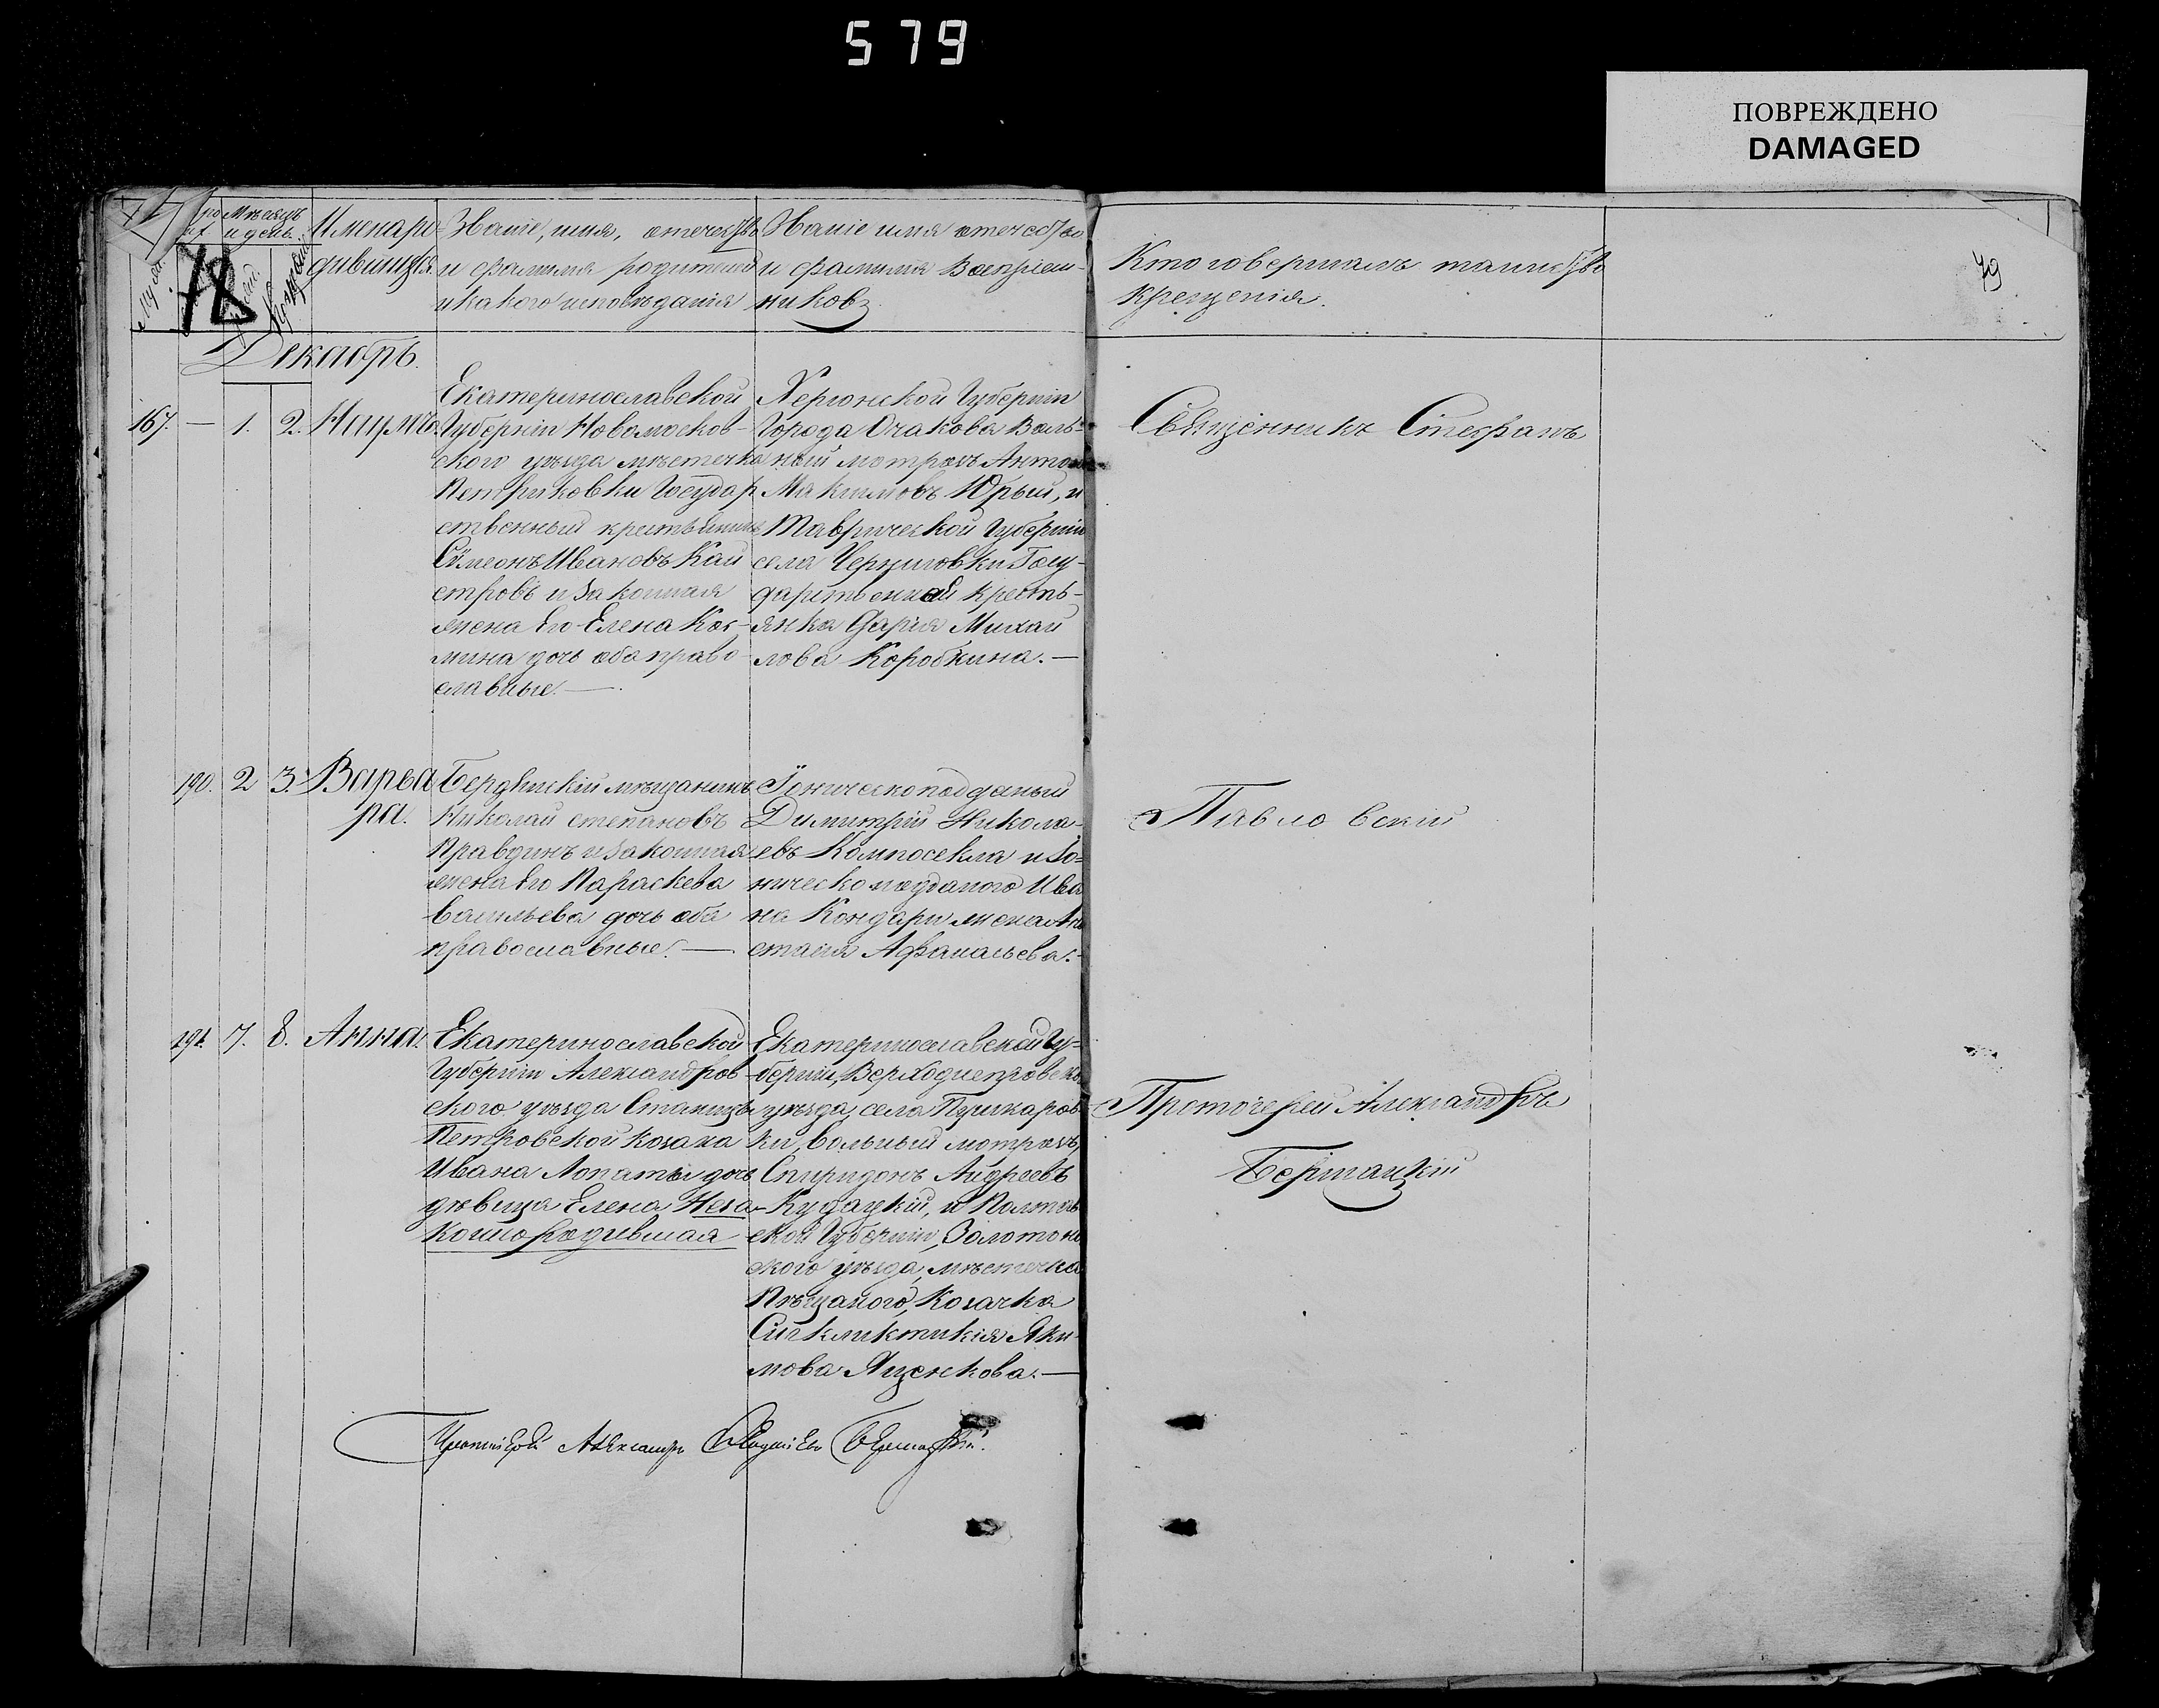 579
ПОВРЕЖДЕНО
DAMAGED
78
79
Мѣсяцъ
и день.
Имена ро-
дившихся.
Званіе, имя, отечество
и фамилія родителей
и какого исповѣданія
Званіе имя отечество
и фамилія Воспріем-
никовъ
Кто совершалъ таинство
крещенія.
Декабрь.
167. — 1. 2. Наумъ.
Екатеринославской
Губерніи Новомосков-
ского уѣзда мѣстечка
Петриковки Государ
ственный крестьянинъ
Сѵмеонъ Ивановъ Кай
стровъ и законная
жена его Елена Кос-
мина дочь оба право-
славные. —
Херсонской Губерніи
Города Очакова Воль-
ный матрозъ Антонъ
Максимовъ Юрый, и
Таврической Губерніи
села Черниговки Госу-
дарственная кресть-
янка Дарія Михаи
лова Коробкина. —
Священникъ Стефанъ
190. 2 3. Варва
ра.
Бердянскій мѣщанинъ
Николай степановъ
Правдинъ и законная
жена его Параскева
Васильева дочь оба
православные. —
Іоническоподданый
Димитрій Никола-
евъ Компосекла и Іо-
ническоподданого Ива
на Кондари жена Ана
стасія Афанасьева. -
Павловскій
191. 7. 8. Анна.
Екатеринославской
Губерніи Александров-
ского уѣзда Станицы
Петровской козака
Ивана Лопаты дочь
дѣвица Елена Неза-
коннородившая
Екатеринославской Гу-
берніи, Верходнепровска
уѣзда, села Пушкаров
ки, вольный матрозъ,
Спиридонъ Андреевъ
Кудацкій, и Полтав
ской Губерніи, Золотонш
ского уѣзда, мѣстечка
Пѣщаного, Козачка
Сигклитикія Яки-
мова Яценкова. —
Протоіерей Александръ
Бершацкій
Протоіерей Александръ Бершацкій.